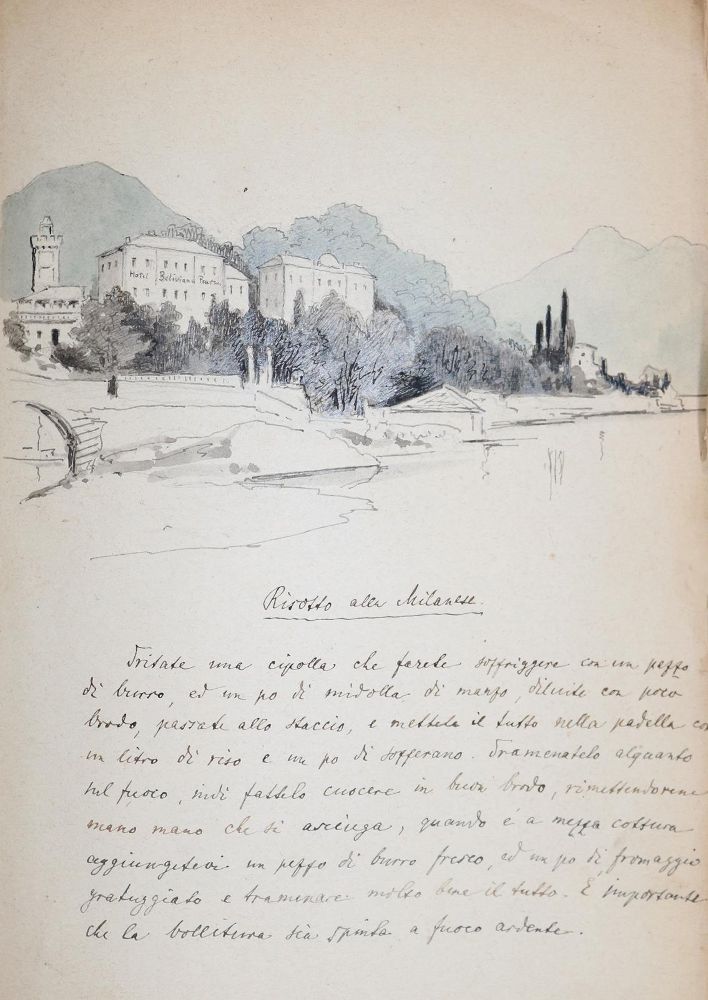 Hotel Belviand
Risotto alla Milanese.
Tritate una cipolla che farete soffriggere con un pezzo
di burro, ed un po di midolla di manzo, diluite con poco
brodo, passate allo staccio, e mettete il tutto nella padella con
un litro di riso e un po di zofferano. Tramenatelo alquanto
sul fuoco, indi fattelo cuocere in buon brodo, rimettendovene
mano mano che si asciuga, quando è a mezza cottura
aggiungetevi un pezzo di burro fresco, ed un po di fromaggio
grattuggiato e tramenare molto bene il tutto. È importante
che la bollitura sia spinta a fuoco ardente.